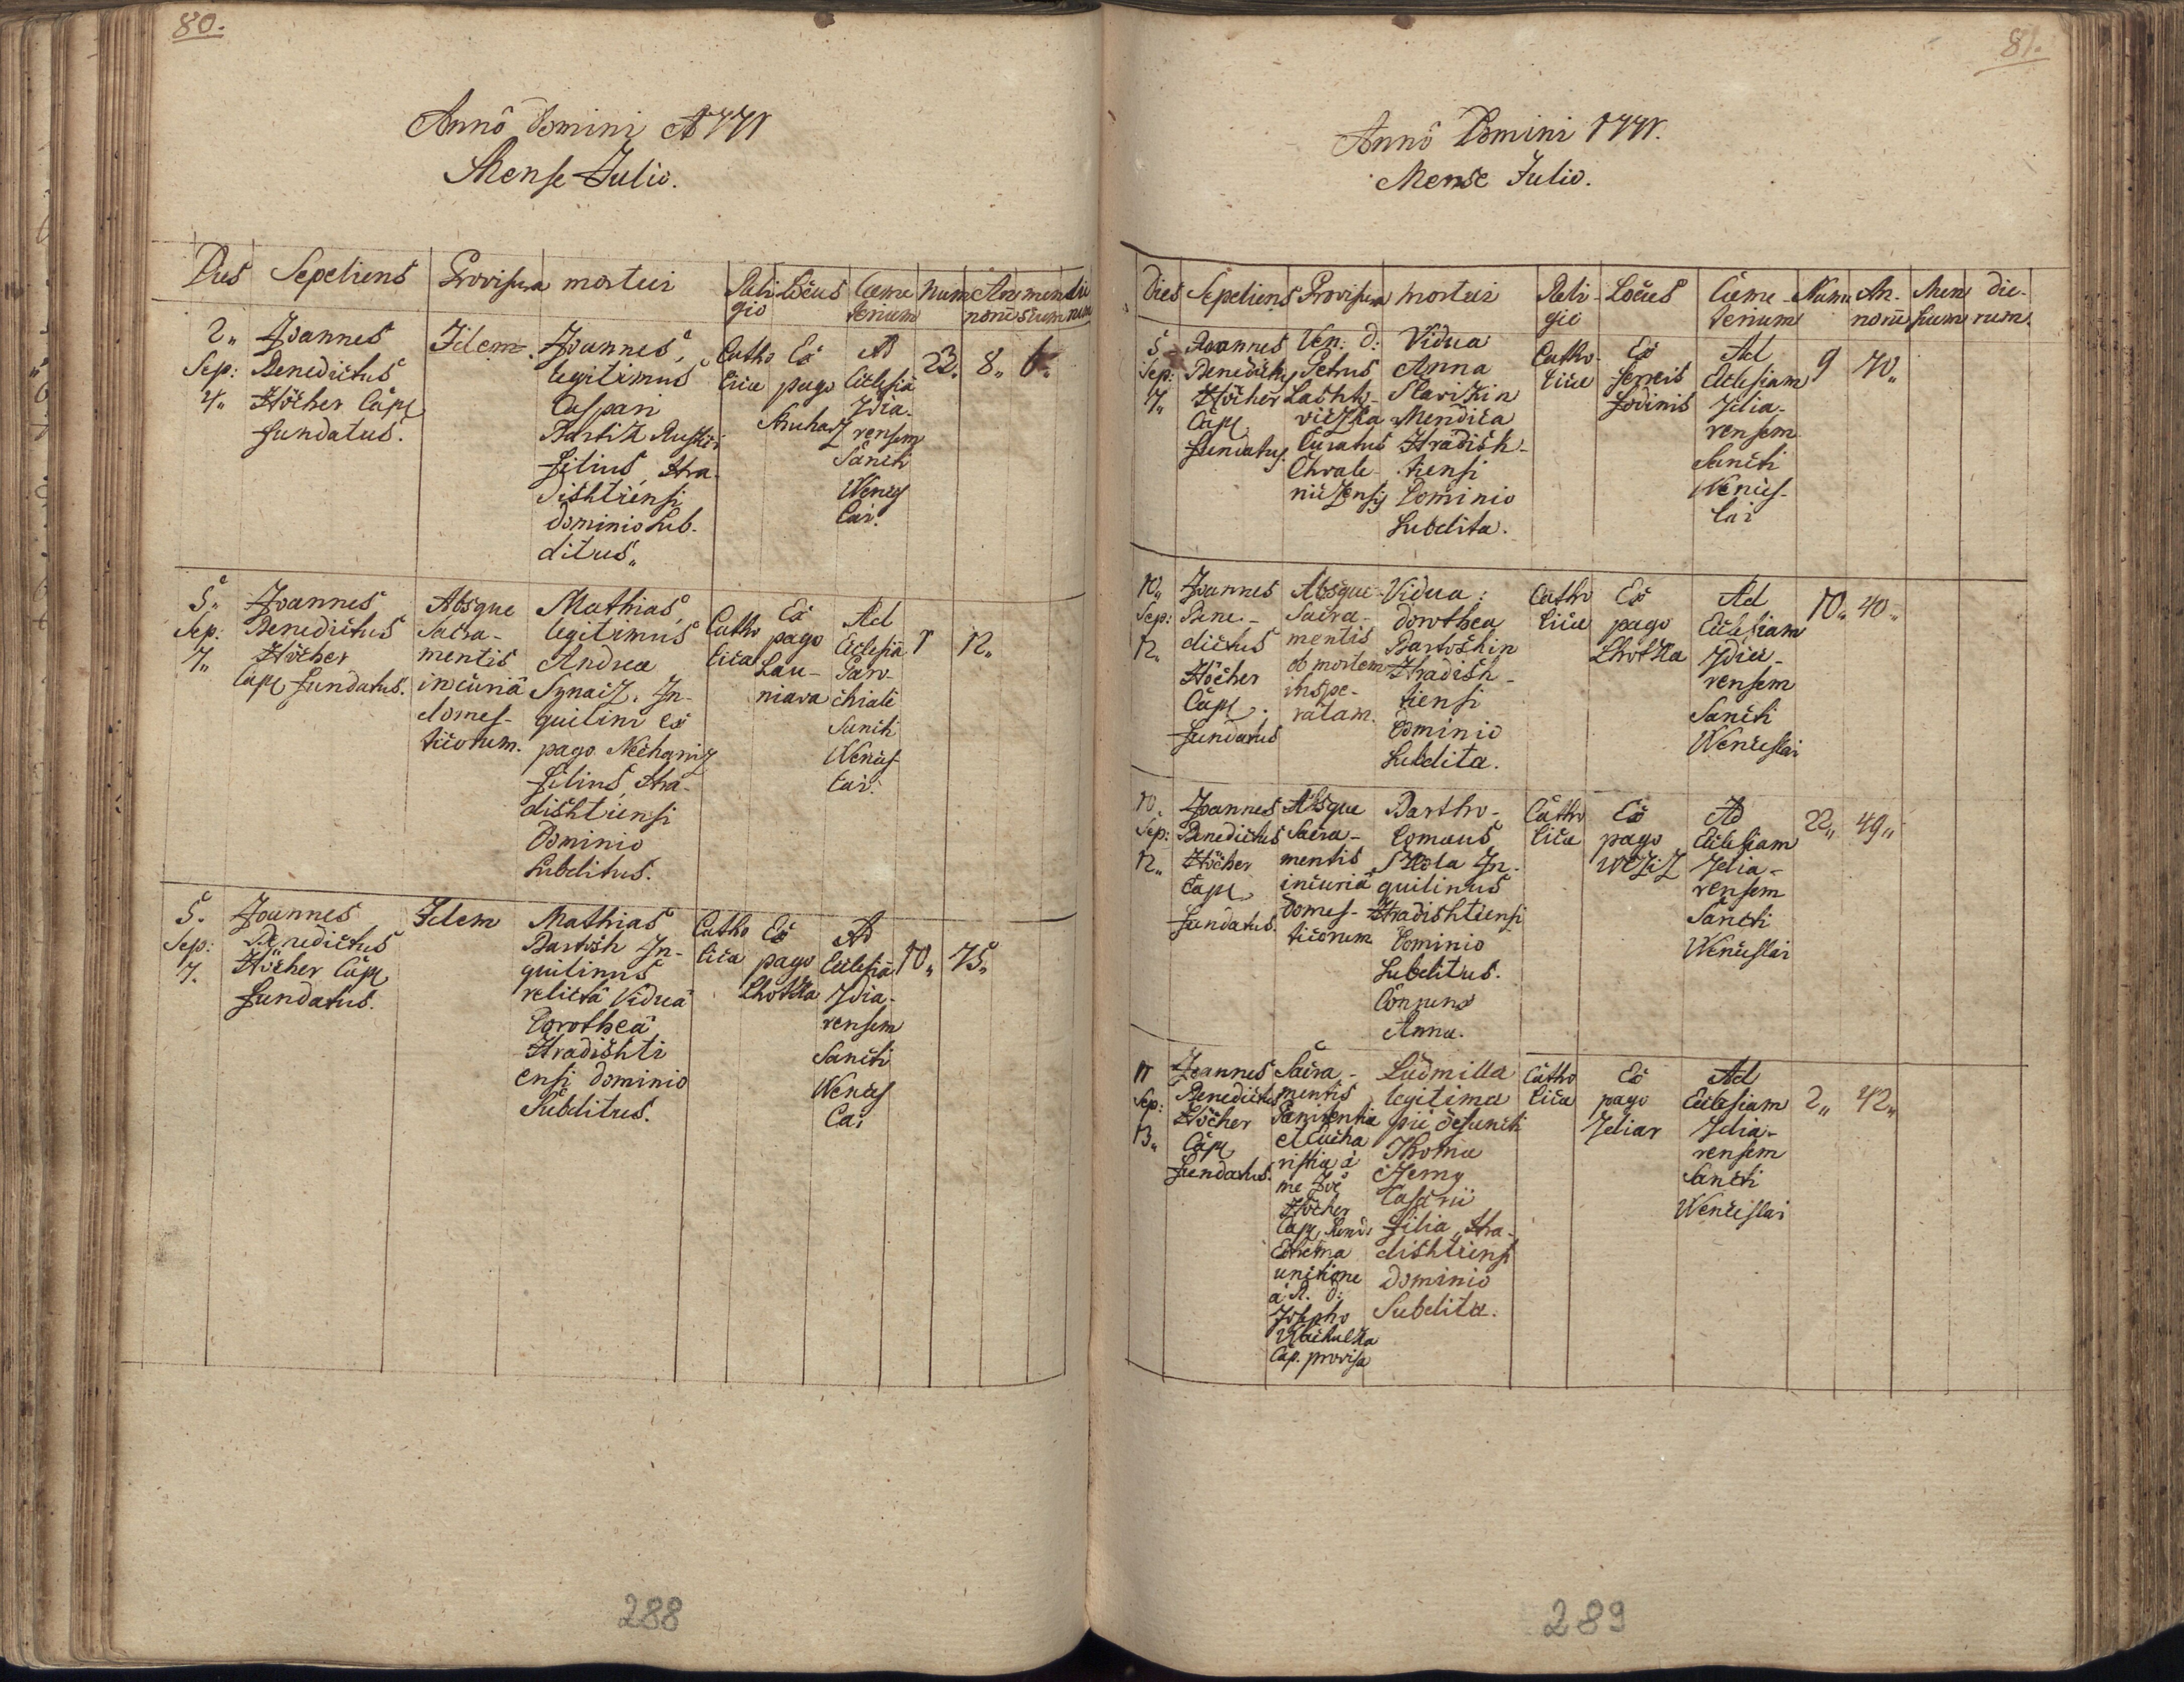 80.
Annô Domini 1771
Mense Julio.
Dies Sepeliens Provisura mortui Reli gio Locus Cæme terium Num An norū men sium die rum
2„ Joannes
Sep: Benedictus
4„ Höcher Capl
fundatus.
Idem.
Joannes,
legitimus
Caspari
Bartik Rustici
filius, Hra-
dishtiensi
dominio Sub-
ditus„
Catho
lica
Ex
pago
Ad
Ecclesiā
Zdia-
rensem
Sancti
Wences
lai.
23. 8„ 6„
5„ Joannes
Sep: Benedictus
7„ Höcher
Capl fundatus.
Absque
Sacra-
mentis
incuriâ
domes-
ticorum.
Mathias,
legitimus
Andreæ
Synaiz, In-
quilini ex
pago Nechaniz
filius, Hra-
dishtiensi
Dominio
Subditus.
Catho
lica
Ex
pago
Lau-
niava
Ad
Ecclesiā
Paro-
chialē
Sancti
Wences
lai.
1 12„
5. Joannes
Sep: Benedictus
7. Höcher Capl
fundatus.
Idem
Mathias
Bartosh In-
quilinus
relictâ Viduâ
Dorotheâ,
Hradishti
ensi dominio
Subditus.
Catho
lica
Ex
pago
Lhotka
Ad
Ecclesiā
Zdia-
rensem
Sancti
Wences
lai
10„ 75„
288
81.
Annô Domini 1771.
Mense Julio.
Dies Sepeliens Provisura mortui Reli gio Locus Cæme terium Num An- norū Men sium die- rum.
5 Joannes
Sep: Benedictus
7„ Höcher
Capl
fundatus.
Ven: D:
Petrus
Lashto-
viczka
Curatus
Chvale-
niczensis
Vidua
Anna
Slavikin
Mendica
Hradish-
tiensi
Dominio
Subdita.
Catho-
lica
Ex
ferreis
fodinis
Ad
Ecclesiam
Zdia-
rensem
Sancti
Wences-
lai
9 70„
10„ Joannes
Sep: Bene-
12„ dictus
Höcher
Capl.
fundatus
Absque
Sacra-
mentis
ob mortem
inspe-
ratam.
Vidua:
Dorothea
Bartoshin
Hradish-
tiensi
Dominio
Subdita.
Catho
lica
Ex
pago
Lhotka
Ad
Ecclesiam
Zdia-
rensem
Sancti
Wenceslai
10„ 40„
10. Joannes
Sep: Benedictus
12„ Höcher
Capl
fundatus.
Absque
Sacra-
mentis
incuriâ
Domes-
ticorum
Bartho-
lomæus
In-
quilinus
Hradishtiensi
Dominio
Subditus.
Conjunx
Anna.
Catho
lica
Ex
pago
Weziz
Ad
Ecclesiam
Zdia-
rensem
Sancti
Wenceslai
22„ 49„
11 Joannes
Sep: Benedictus
13„ Höcher
Capl
fundatus.
Sacra-
mentis
Pænitentia
et Eucha
ristia à
me Joē
Höcher
Capl
Extrema
unctione
à R. D:
Josepho
Cap. provisa
Ludmilla
legitima
pie defuncti
Thomæ
Czerny
Casarii
filia, Hra-
dishtiensi
Dominio
Subdita.
Catho
lica
Ex
pago
Zdiar
Ad
Ecclesiam
Zdia-
rensem
Sancti
Wenceslai
2„ 42„
289